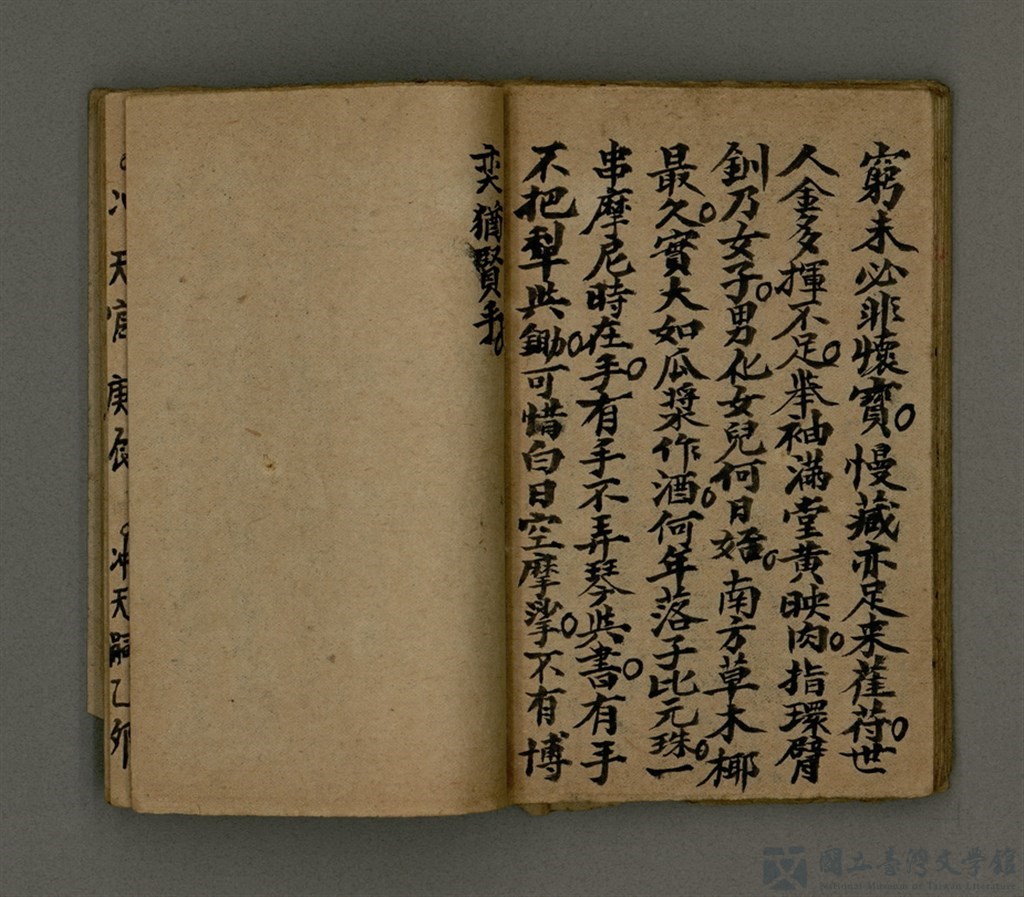 窮未必非懷寶。慢藏亦足來萑苻。世
人金多揮不足。举袖滿堂黃映肉。指環臂
釧乃女子。男化女兒何日始。南方草木椰
最久。實大如瓜漿作酒。何年落子比元珠。一
串摩尼時在手。有手不弄琴與書。有手
不把犁與鋤。可惜白日空摩挲。不有博
奕猶賢乎。
冲天官 庚辰 。冲天嗣乙卯
國立臺灣文學館
National Museum of Taiwan Literature